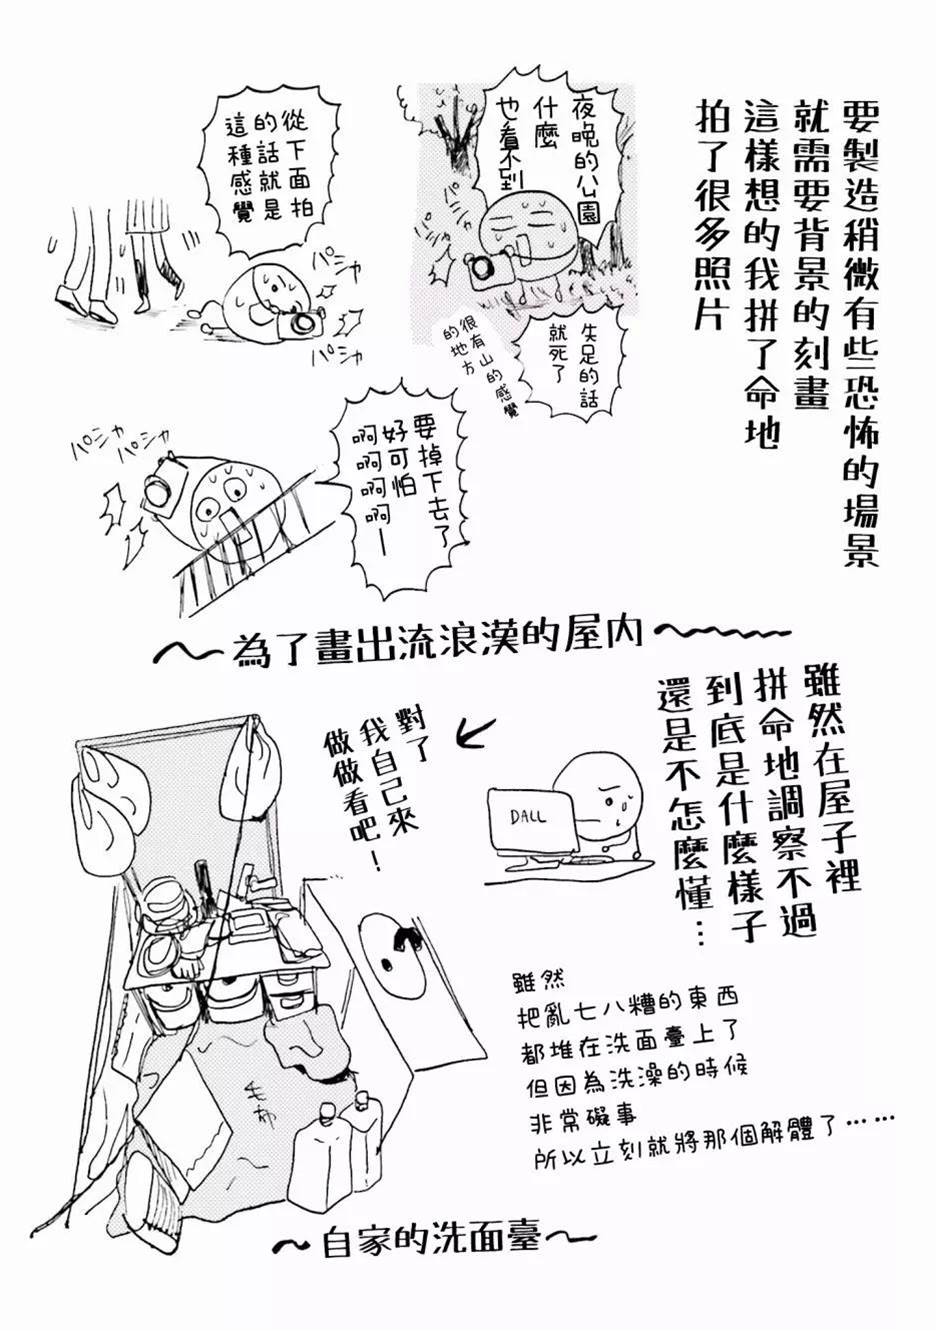 要製造稍微有些恐怖的場景
就需要背景的刻畫
這樣想的我拼了命地
拍了很多照片
夜晚的公園
什麼
也看不到
パシャ
パシャ
失足的話
就死了
很有山的感覺
的地方
從下面拍
的話就是
這種感覺
パシャ
パシャ
要掉下去了
好可怕
啊啊啊啊ー
パシャ
パシャ
～為了畫出流浪漢的屋內～
雖然在屋子裡
拼命地調察不過
到底是什麼樣子
還是不怎麼懂…
DALL
對了
我自己來
做做看吧！
毛布
雖然
把亂七八糟的東西
都堆在洗面臺上了
但因為洗澡的時候
非常礙事
所以立刻就將那個解體了……
～自家的洗面臺～